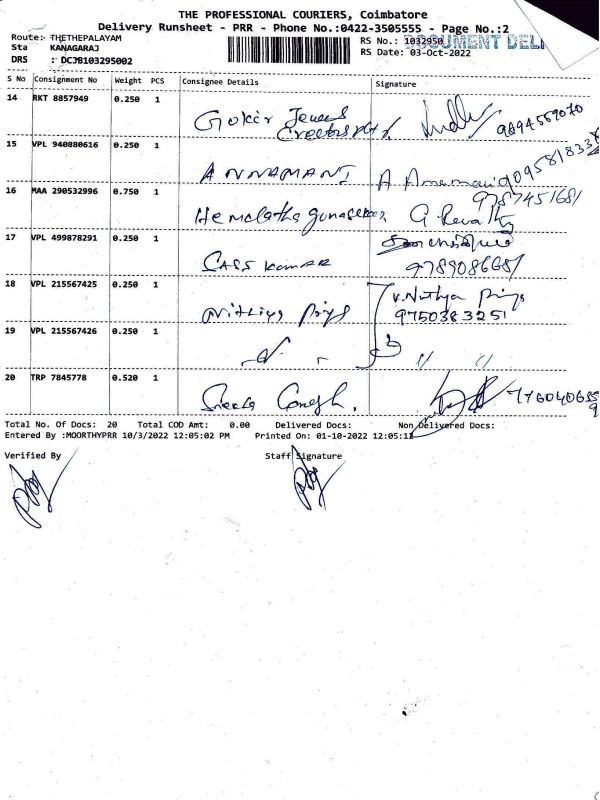 THE PROFESSIONAL COURIERS, Coimbatore
Delivery Runsheet - PRR - Phone No.:0422-3505555 - Page No.:2
Route:- THETHEPALAYAM
Sta KANAGARAJ
DRS : DCJB103295002
RS No.: 1032950
DOCUMENT DELI
RS Date: 03-Oct-2022
S No Consignment No Weight PCS Consignee Details Signature
14 RKT 8857949 0.250 1
9894559070
15 VPL 940880616 0.250 1
ANNAMANI
16 MAA 290532996 0.750 1 9787451681
Hemalatha gunasekar G. Revathy
17 VPL 499878291 0.250 1
Sass Kumar 9789086681
18 VPL 215567425 0.250 1 V. Nithya Priya
Nithiya Priya 9750383251
19 VPL 215567426 0.250 1
20 TRP 7845778 0.520 1
Total No. Of Docs: 20 Total COD Amt: 0.00 Delivered Docs: Non Delivered Docs:
Entered By :MOORTHYPRR 10/3/2022 12:05:02 PM Printed On: 01-10-2022 12:05:12
Verified By Staff Signature